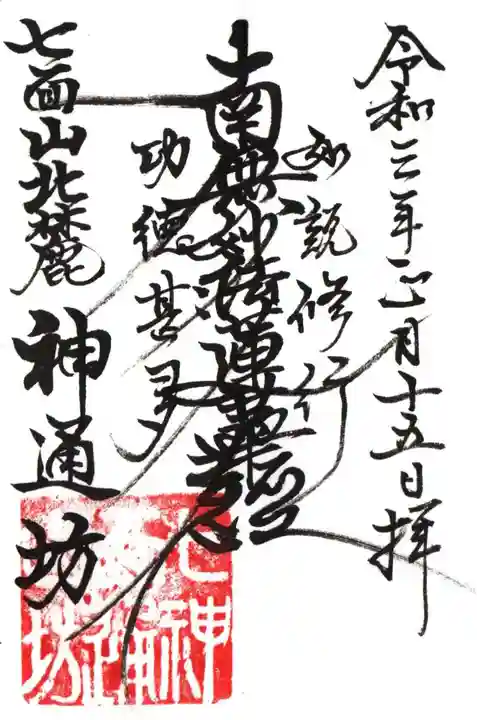 令和三年正月十五日拝
如説修行
南無妙法蓮華経
功徳甚多
七面山北麓 神通坊